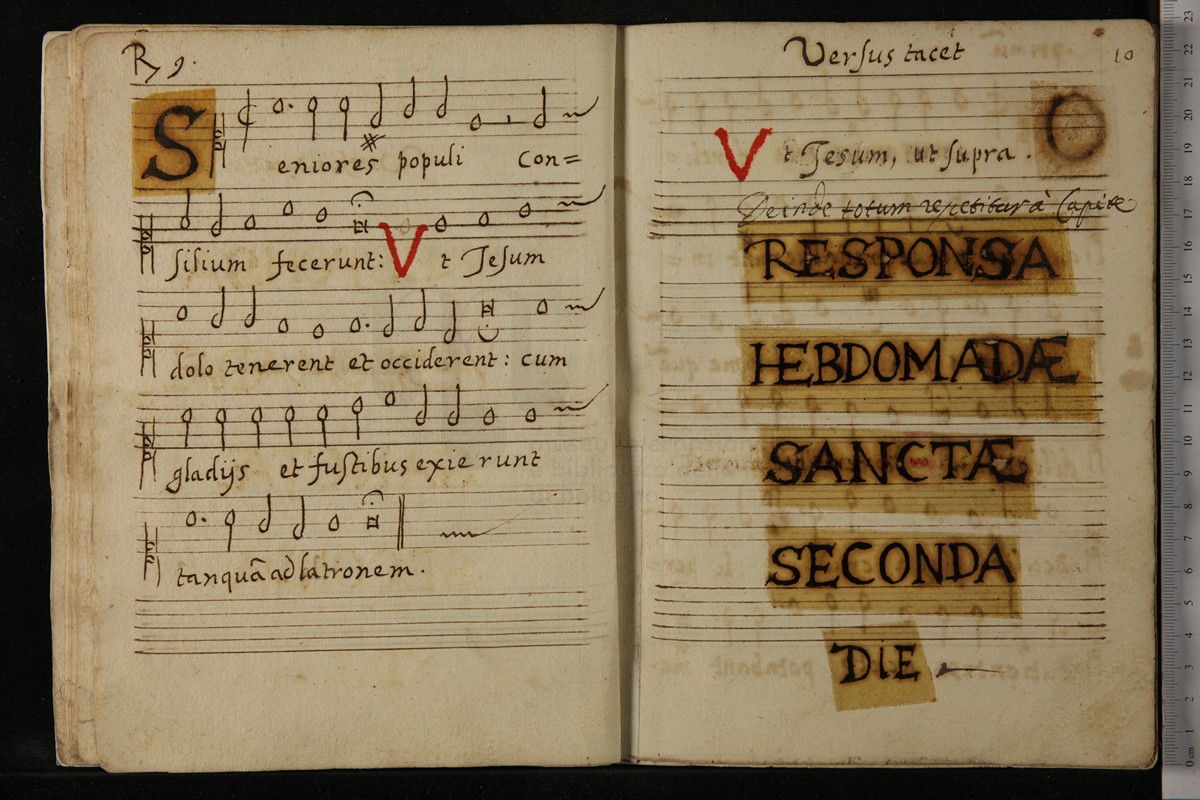 R 9.
Seniores populi Con=
silium fecerunt: Vt Jesum
dolo tenerent et occiderent: cum
gladijs et fustibus exierunt
tanquã ad latronem.
Versus tacet 10
Vt Jesum, ut supra.
Deinde totum repetitur à Capite
RESPONSA
HEBDOMADÆ
SANCTÆ
SECONDA
DIE